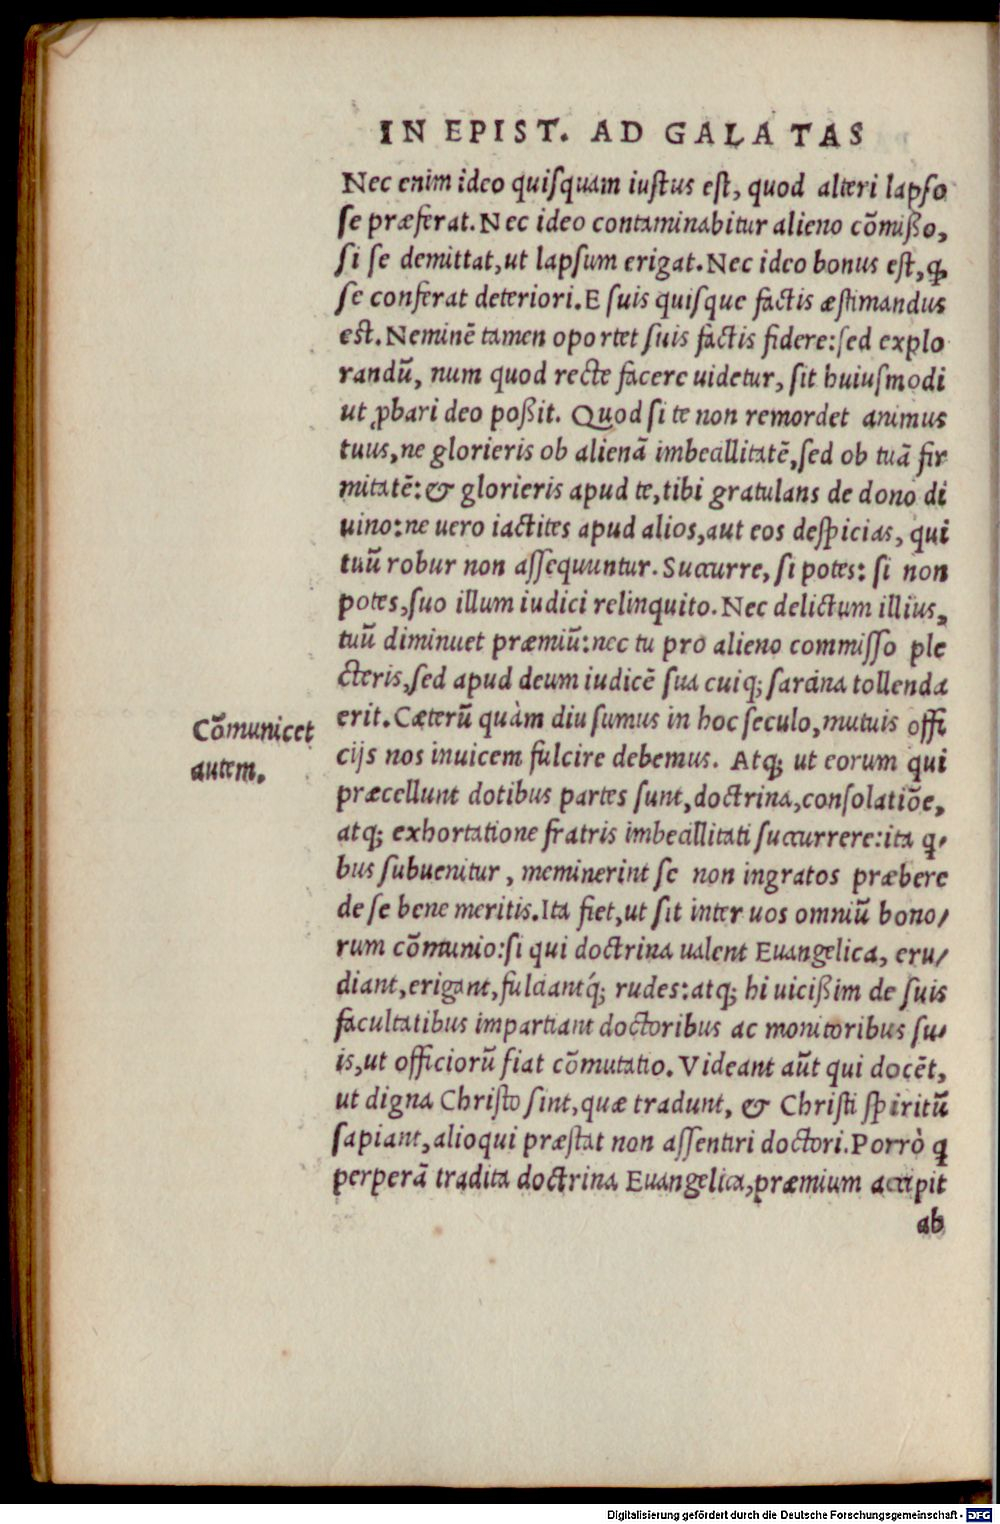 IN EPIST. AD GALATAS
Nec enim ideo quiſquam iuſtus eſt, quod alteri lapſo
ſe præferat. Nec ideo contaminabitur alieno cõmißo,
ſi ſe demittat, ut lapſum erigat. Nec ideo bonus eſt, ꝙ
ſe conferat deteriori. E ſuis quiſque factis æſtimandus
est. Neminẽ tamen oportet ſuis factis fidere: ſed explo
randũ, num quod recte facere uidetur, ſit huiuſmodi
ut ꝓbari deo poßit. Quod ſi te non remordet animus
tuus, ne glorieris ob alienã imbecillitatẽ, ſed ob tuã fir
mitatẽ: & glorieris apud te, tibi gratulans de dono di
uino: ne uero iactites apud alios, aut eos deſpicias, qui
tuũ robur non aſſequuntur. Succurre, ſi potes: ſi non
potes, ſuo illum iudici relinquito. Nec delictum illius,
tuũ diminuet præmiũ: nec tu pro alieno commiſſo ple
cteris, ſed apud deum iudicẽ ſua cuiq; ſarcina tollenda
Cõmunicet
autem.
erit. Cæterũ quàm diu ſumus in hoc ſeculo, mutuis offi
cijs nos inuicem fulcire debemus. Atq; ut eorum qui
præcellunt dotibus partes ſunt, doctrina, conſolatiõe,
atq; exhortatione fratris imbecillitati ſuccurrere: ita q⸗
bus ſubuenitur, meminerint ſe non ingratos præbere
de ſe bene meritis. Ita fiet, ut ſit inter uos omniũ bono⸗
rum cõmunio: ſi qui doctrina ualent Euangelica, eru⸗
diant, erigant, fulciantq́; rudes: atq; hi uicißim de ſuis
facultatibus impartiant doctoribus ac monitoribus ſu⸗
is, ut officiorũ fiat cõmutatio. Videant aũt qui docẽt,
ut digna Chriſto ſint, quæ tradunt, & Chriſti ſpiritũ
ſapiant, alioqui præſtat non aſſentiri doctori. Porrò ꝙ
perperã tradita doctrina Euangelica, præmium accipit
ab
Digitalisierung gefördert durch die Deutsche Forschungsgemeinschaft - DFG